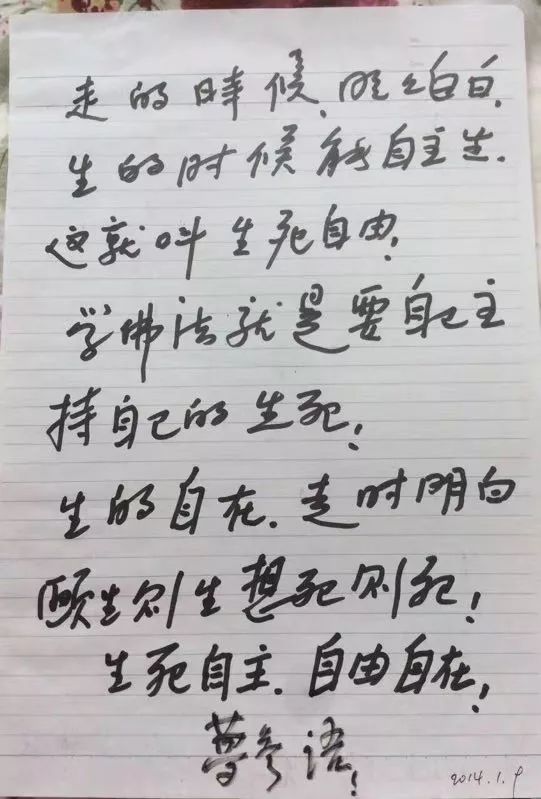 走的時候、明明白白、
生的时候能自主生.
这就叫生死自由！
学佛法就是要自己主
持自己的生死！
生的自在.走时明白
愿生则生想死则死！
生死自主.自由自在！
梦参语！
2014.1.9